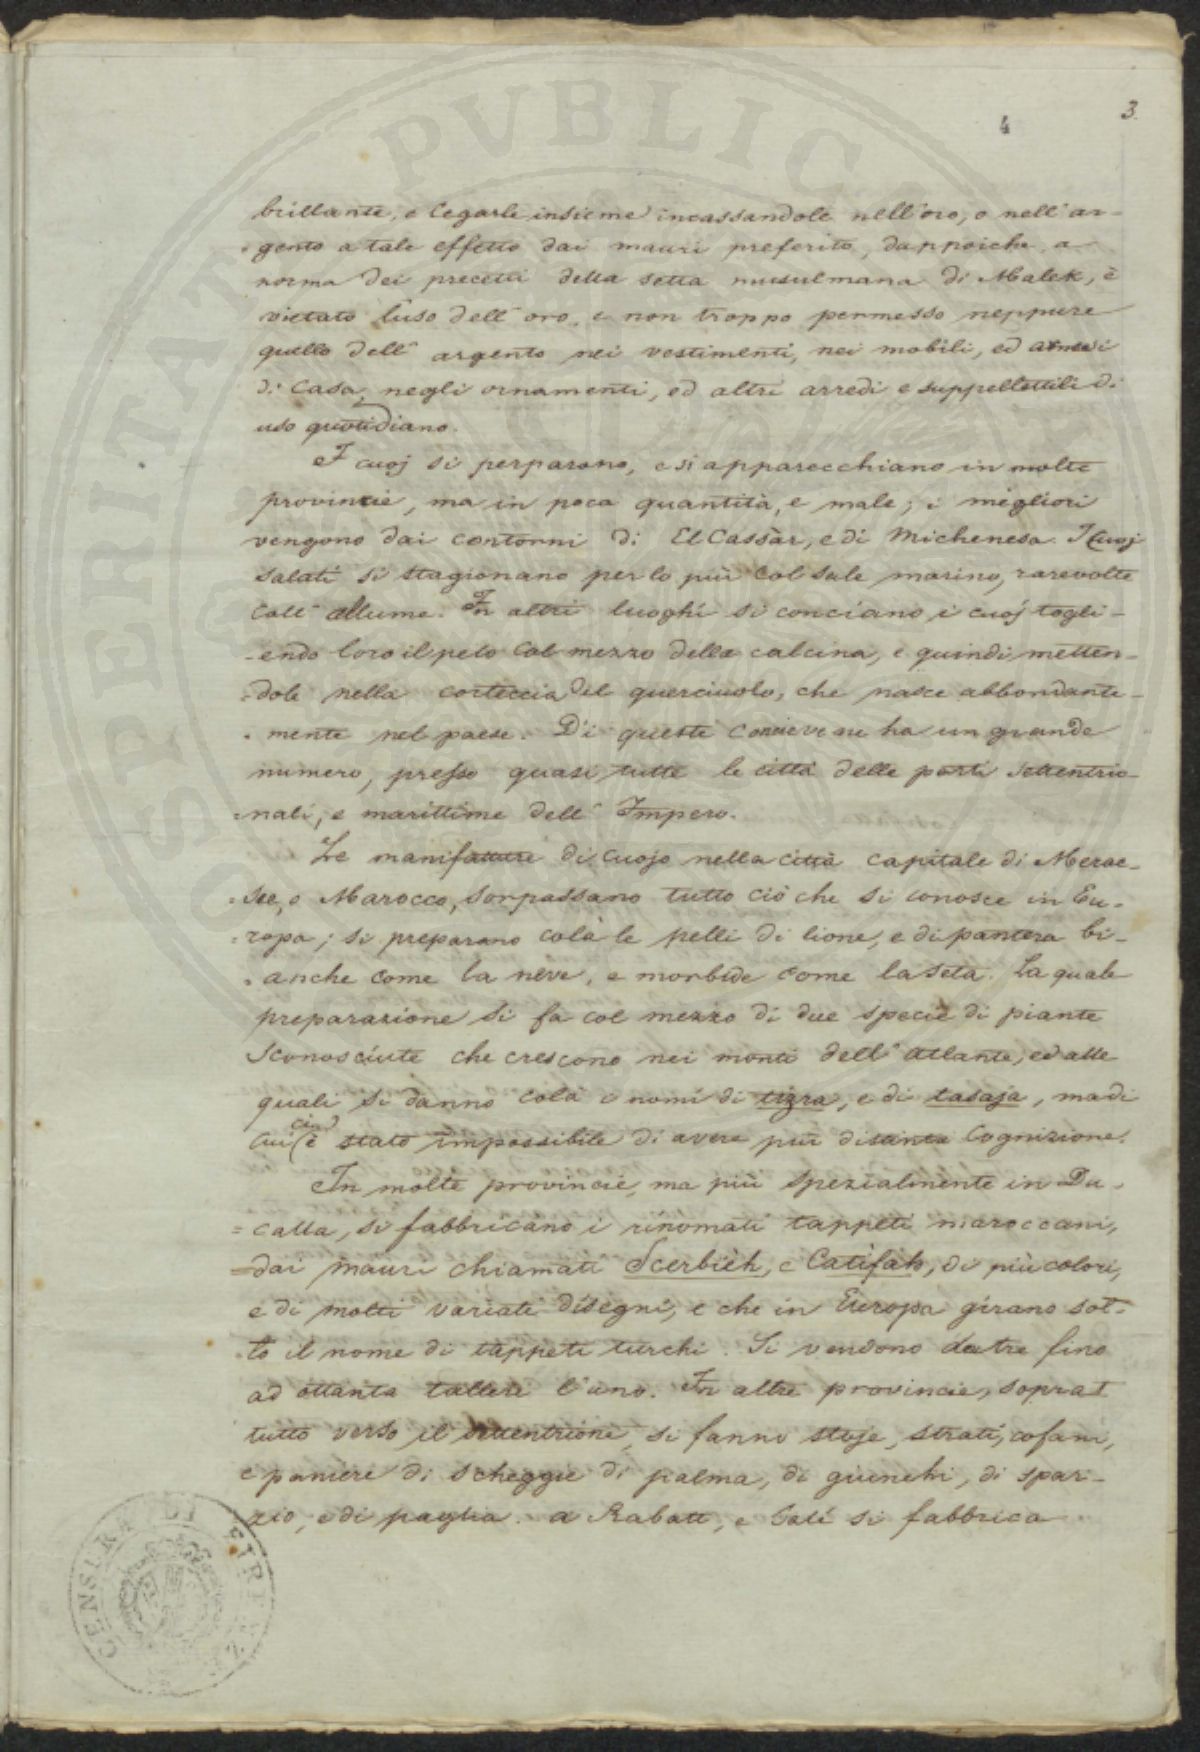 3
4
brillante, e legarle insieme incassandole nell'oro, o nell'ar-
-gento a tale effetto dai mauri preferito, dappoiche, a
norma dei precetti della setta musulmana di Malek, è
vietato l'uso dell'oro, e non troppo permesso neppure
quello dell'argento nei vestimenti, nei mobili, ed arnesi
di casa, negli ornamenti, ed altri arredi e suppellettili di
uso quotidiano.
I cuoj si perparano, e si apparecchiano in molte
provincie, ma in poca quantità, e male; i migliori
vengono dai contorni di El Cassàr, e di Michenesa. I cuoj
salati si stagionano per lo più col sale marino, rare volte
coll'allume. In altri luoghi si conciano i cuoj togli-
-endo loro il pelo col mezzo della calcina, e quindi metten-
-dole nella corteccia del querciuolo, che nasce abbondante-
-mente nel paese. Di queste concie ve ne ha un grande
numero, presso quasi tutte le città delle parti settentrio-
-nali, e marittime dell'Impero.
Le manifatture di cuojo nella città capitale di Meroc-
o Marocco, sorpassano tutto ciò che si conosce in Eu-
-ropa; si preparano colà le pelli di lione, e di pantera bi-
-anche come la neve, e morbide come la seta. La quale
preparazione si fa col mezzo di due specie di piante
sconosciute che crescono nei monti dell'atlante, ed alle
quali si danno colà i nomi di tizra, e di tasaja, ma di
cui ci è stato impossibile di avere più distinta cognizione.
In molte provincie, ma più spezialmente in Du-
=calla, si fabbricano i rinomati tappeti maroccani,
=dai mauri chiamati Scerbièh, e Catifàh, di più colori,
e di molti variati disegni, e che in Europa girano sot-
-to il nome di tappeti turchi. Si vendono da tre fino
ad ottanta talleri l'uno. In altre provincie, soprat
tutto verso il settentrione, si fanno stoje, strati, cofani,
e paniere di scheggie di palma, di giunchi, di spar-
-zio, e di paglia. a Rabatt, e Salé si fabbrica
CENSURA DI FIRENZE
PVBLICA